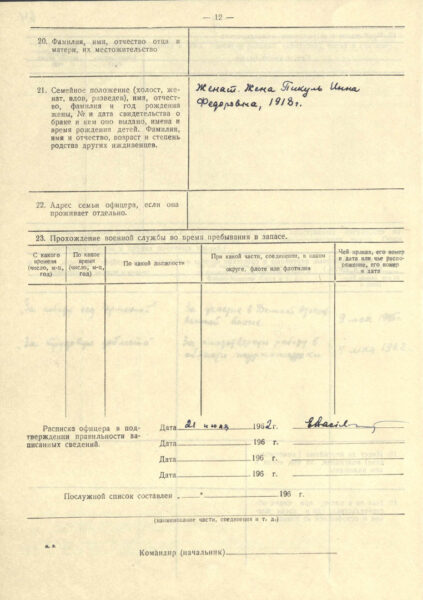 — 12 —
20. Фамилия, имя, отчество отца и
матери, их местожительство
21. Семейное положение (холост, же-
нат, вдов, разведен), имя, отчест-
во, фамилия и год рождения
жены, № и дата свидетельства о
браке и кем оно выдано, имена и
время рождения детей. Фамилия,
имя и отчество, возраст и степень
родства других иждивенцев.
Женат. Жена Пикуль Инна
Федоровна, 1918 г.
22. Адрес семьи офицера, если она
проживает отдельно.
23. Прохождение военной службы во время пребывания в запасе.
С какого
времени
(число, м-ц,
год)
По какое
время
(число, м-ц,
год)
По какой должности
При какой части, соединении, в каком
округе, флоте или флотилии
Чей приказ, его номер
и дата или чье распо-
ряжение, его номер
и дата
Расписка офицера в под-
тверждении правильности за-
писанных сведений.
Дата 21 1962 г.
Дата 196 г.
Дата 196 г.
Дата 196 г.
Послужной список составлен „ " 196 г.
(наименование части, соединения и т. д.)
Командир (начальник)